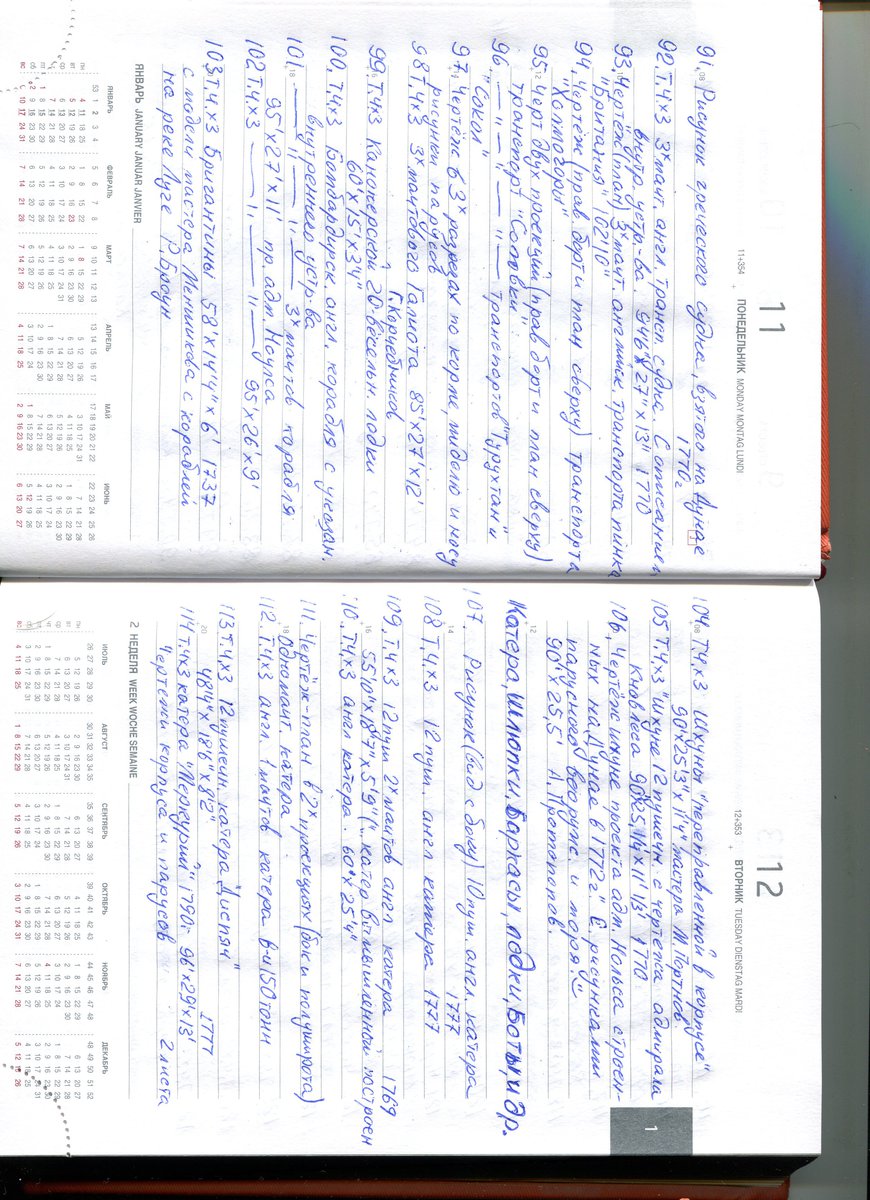 11
11+354 ПОНЕДЕЛЬНИК MONDAY MONTAG LUNDI
91. Рисунок греческого судна, взятого на Дунае
1770г
92. Т.Ч.х3 3х мачт. англ. трансп. судна. С описанием
внутр. устр-ва. 94'6"х27"х13" 1770
93. Чертёж (план) 3х мачт. английск. транспорта пинка
"Британия" 102'10"
94. Чертёж (прав. борт и план сверху) транспорта
"Холмогоры"
95. Черт двух проекций (прав борт и план сверху)
транспорт "Соловки"
96. — " — " — " — транспортов "Турухтан" и
"Сокол"
97. Чертёж в 3х разрезах по корме, миделю и носу
рисунки парусов
98 Т.Ч.х3 3х мачтового Галиота 85'х27'х12'
Г. Корчебников
99. Т.Ч.х3 Канонерской 20-вёсельн. лодки
60'х15'х3'4"
100. Т.Ч.х3 Бомбардирск. англ. корабля с указан.
внутреннего устр-ва
101. — " — " — 3х мачтов корабля
95'х27'х11' пр. адм. Ноулса
102 Т.Ч.х3 — " — " — 95'х26'х9'
103. Т.Ч.х3 Бригантины 58'х14'4"х6' 1737
с модели мастера Меншикова с кораблей
на реке Луге Р. Броун
ЯНВАРЬ JANUARY JANUAR JANVIER
ЯНВАРЬ ФЕВРАЛЬ МАРТ АПРЕЛЬ МАЙ ИЮНЬ
12
12+353 ВТОРНИК TUESDAY DIENSTAG MARDI
1
104 Т.Ч.х3 Шхуны "переправленной в корпусе"
90'х25'3"х11'4" мастера М. Портнов
105 Т.Ч.х3 "Шхуне 12 пушечн. с чертежа адмирала
Кновлеса 90'х25,1/4х11'1/3' 1770
106. Чертёж шхуне проекта адм. Нольса строен-
ных на Дунае в 1772г". С рисунками
парусного вооруж. и моря. :)
90'х25,5' А. Протопопов.
Катера, Шлюпки, Баркасы, лодки, Боты, и др.
107. Рисунок (вид с боку) 10 пуш. англ. катера
1777
108 Т.Ч.х3 12 пуш. англ катера 1777
109. Т.Ч х3 12 пуш 2х мачтов англ катера 1769
55'10"х18'7"х5'9" (".. катер вымышленной построен
10. Т.Ч.х3 англ катера. 60'х25'4"
111. Чертёж-план в 2х проекциях (бок и полуширота)
Одномачт. катера
112. Т.Ч.х3 англ. 1 мачтов катера в-и 150 тонн
113 Т.Ч.х3 12 пушечн. катера "Диспяч"
48'4"х18'6"х8'2" 1777
114 Т.Ч.х3 катера "Меркурий" 1790г 96'х29'х13'
Чертежи корпуса и парусов 2 листа
2 НЕДЕЛЯ WEEK WOCHE SEMAINE
ИЮЛЬ АВГУСТ СЕНТЯБРЬ ОКТЯБРЬ НОЯБРЬ ДЕКАБРЬ